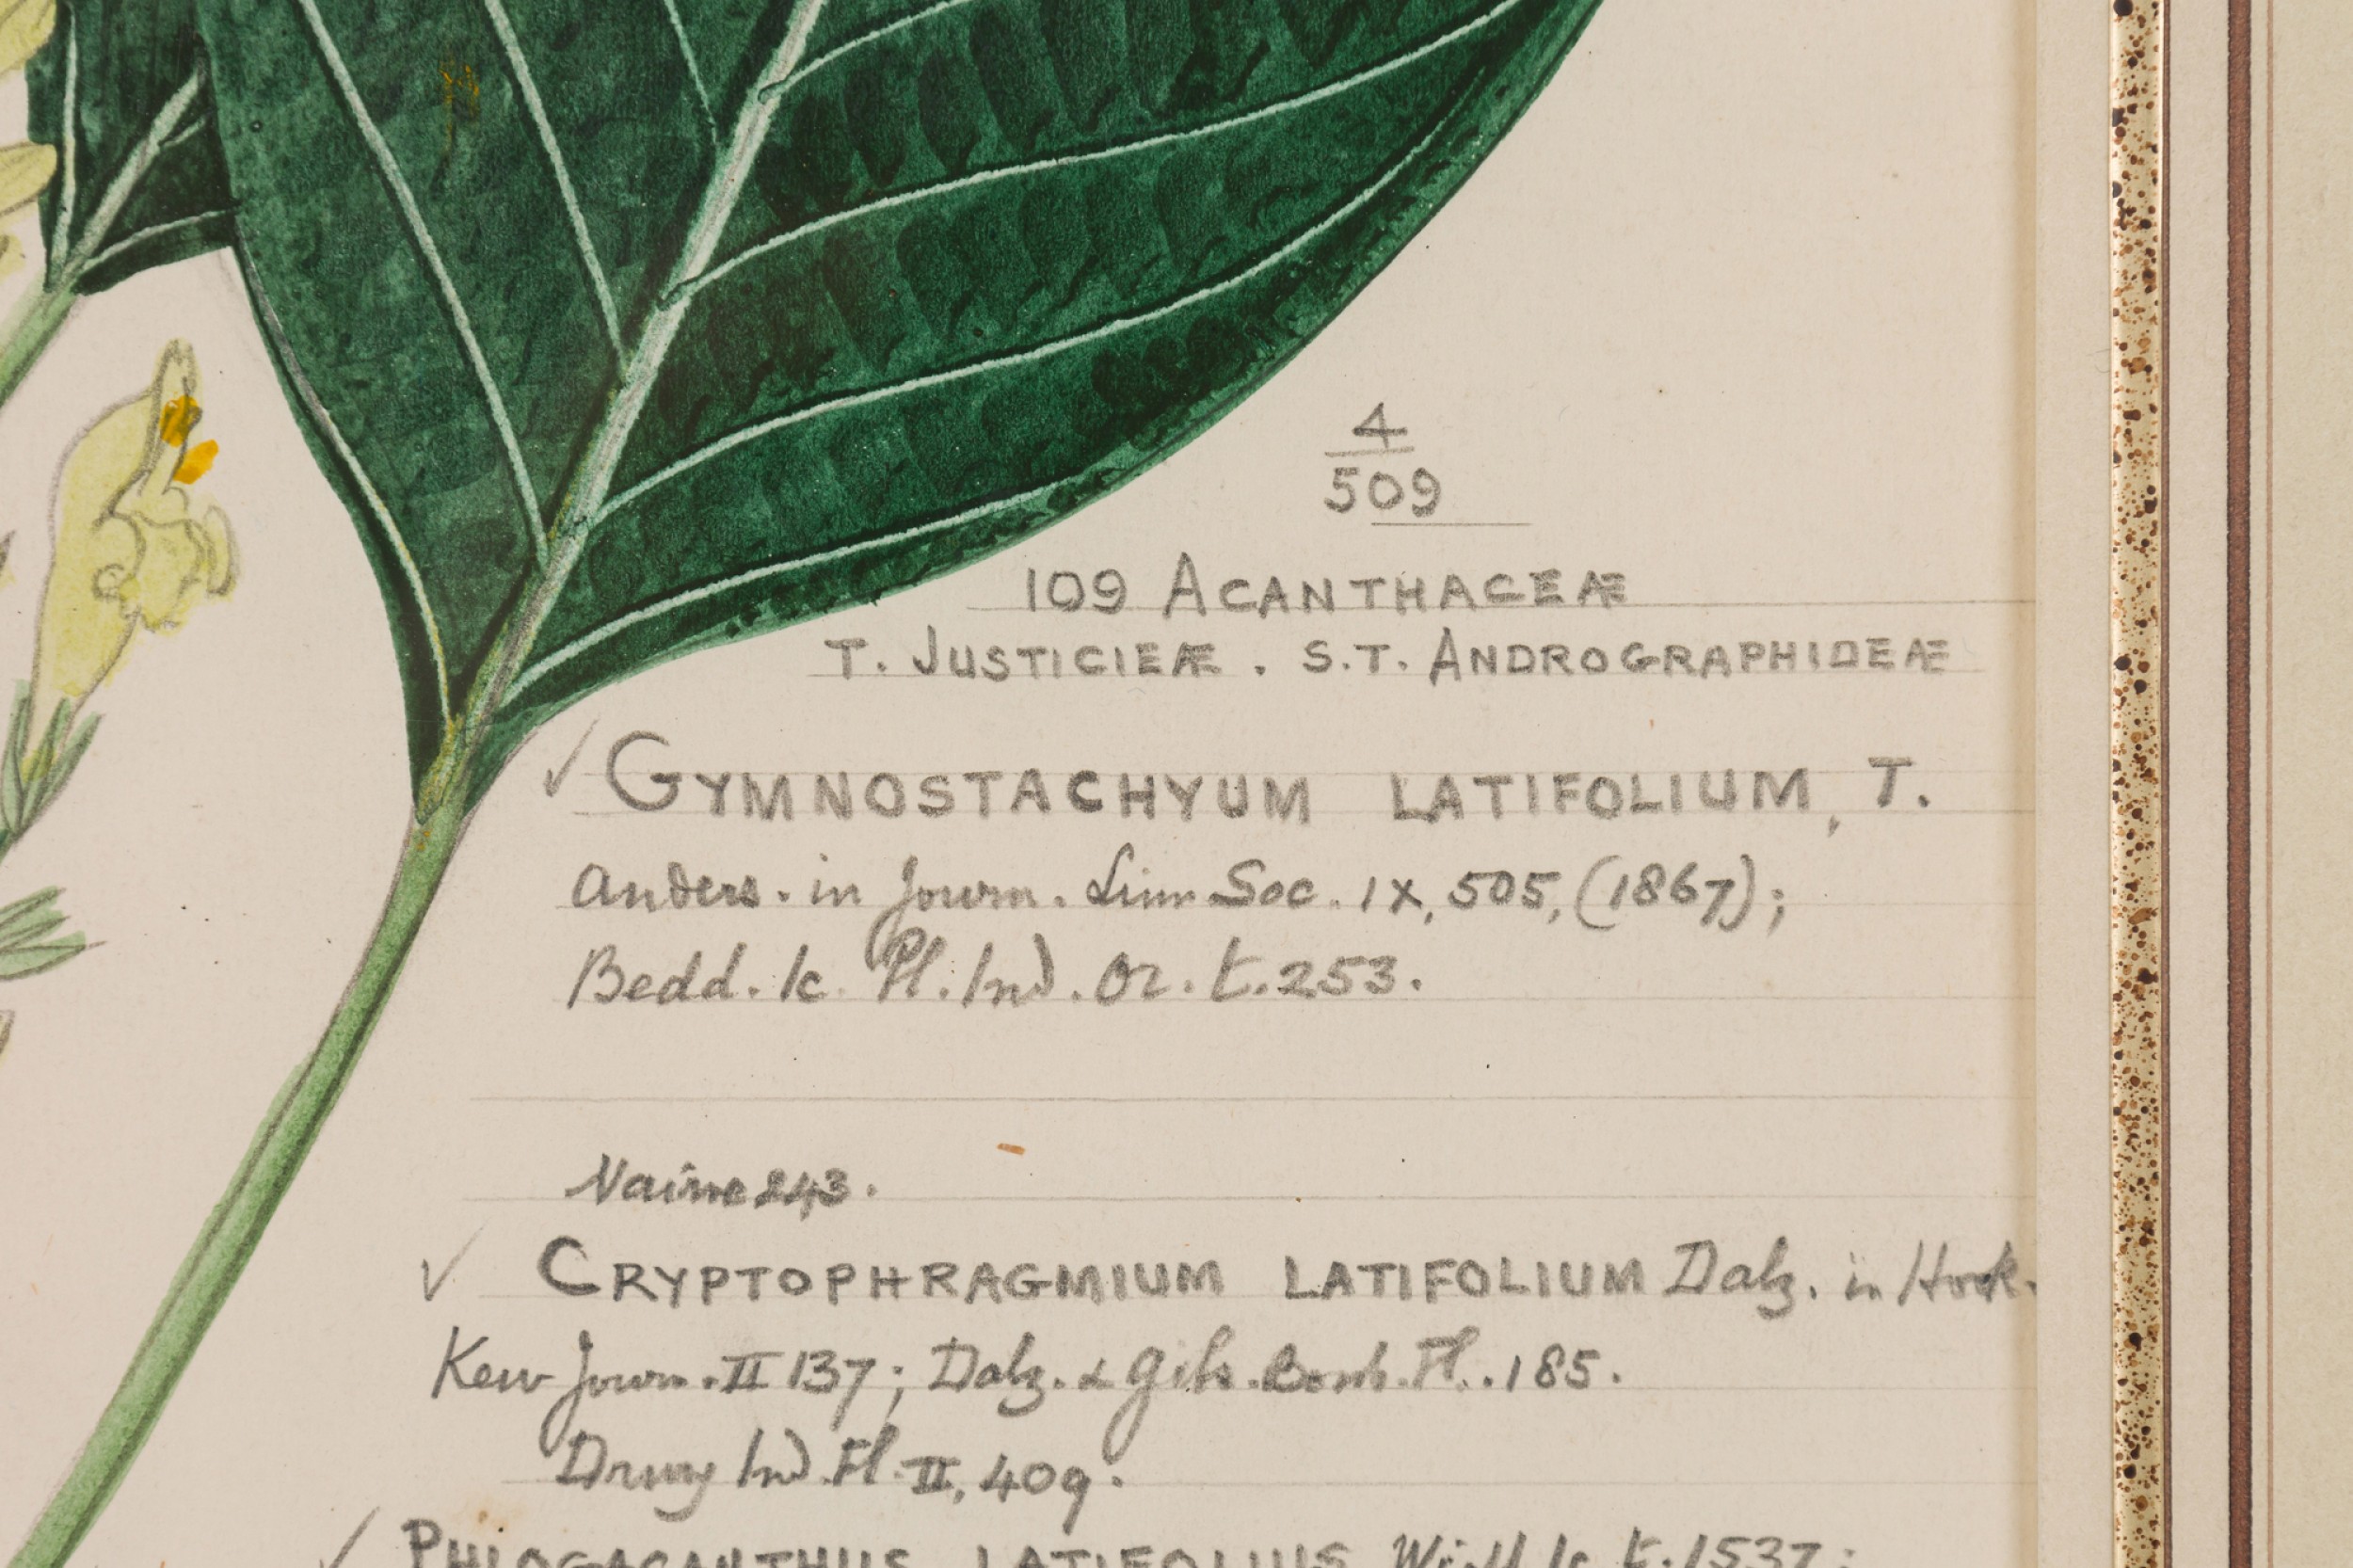 4
509
109 ACANTHACEÆ
T. JUSTICIEÆ . S.T. ANDROGRAPHIDEÆ
✓ GYMNOSTACHYUM LATIFOLIUM, T.
Anders. in Journ. Linn Soc. IX, 505, (1867);
Bedd. Ic. Pl. Ind. Or. t. 253.
Nairne 243.
✓ CRYPTOPHRAGMIUM LATIFOLIUM Dalz. in Hook.
Kew Journ. II 137; Dalz. & Gibs. Bomb. Fl. . 185.
Drury Ind. Fl. II, 409.
✓ PHLOGACANTHUS LATIFOLIUS Wight Ic. t. 1537;